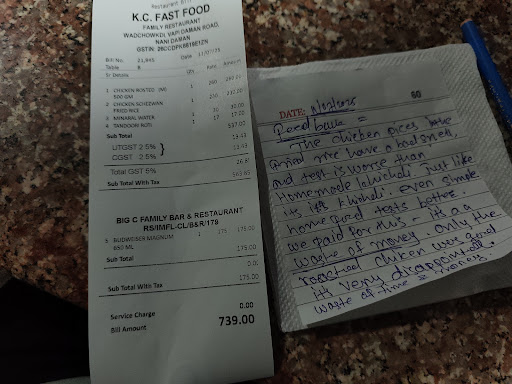 Restaurant Bill
K.C. FAST FOOD
FAMILY RESTAURANT
WADCHOWKDI, VAPI DAMAN ROAD,
NANI DAMAN
Bill No. 21,845 Date
Table 9
Sr Details Qty Rate Amount
1 CHICKEN ROSTED 1 260
500 GM
2 CHICKEN SCHEZWAN 1 230
FRIED RICE
3 MINARAL WATER 1
4 TANDOORI ROTI 1 17 17.00
Sub Total 537.00
UTGST 2.5% } 13.43
CGST 2.5% 13.43
Total GST 5% 26.85
Sub Total With Tax 563.85
BIG C FAMILY BAR & RESTAURANT
RS/IMFL-CL/B&R/179
5 BUDWISER MAGNUM 1 175 175.00
650 ML
Sub Total 175.00
0.00
Sub Total With Tax 175.00
Service Charge 0.00
Bill Amount 739.00
DATE:
Feed back =
The chicken rices have
me have a bad smell,
and test is worse than
Homemade khichdi. just like
its it's khichdi. even simple
home food tests better.
we paid for this - its a
waste of money only the
roasted chiken was good
it's very disappointed.
waste of time & money.